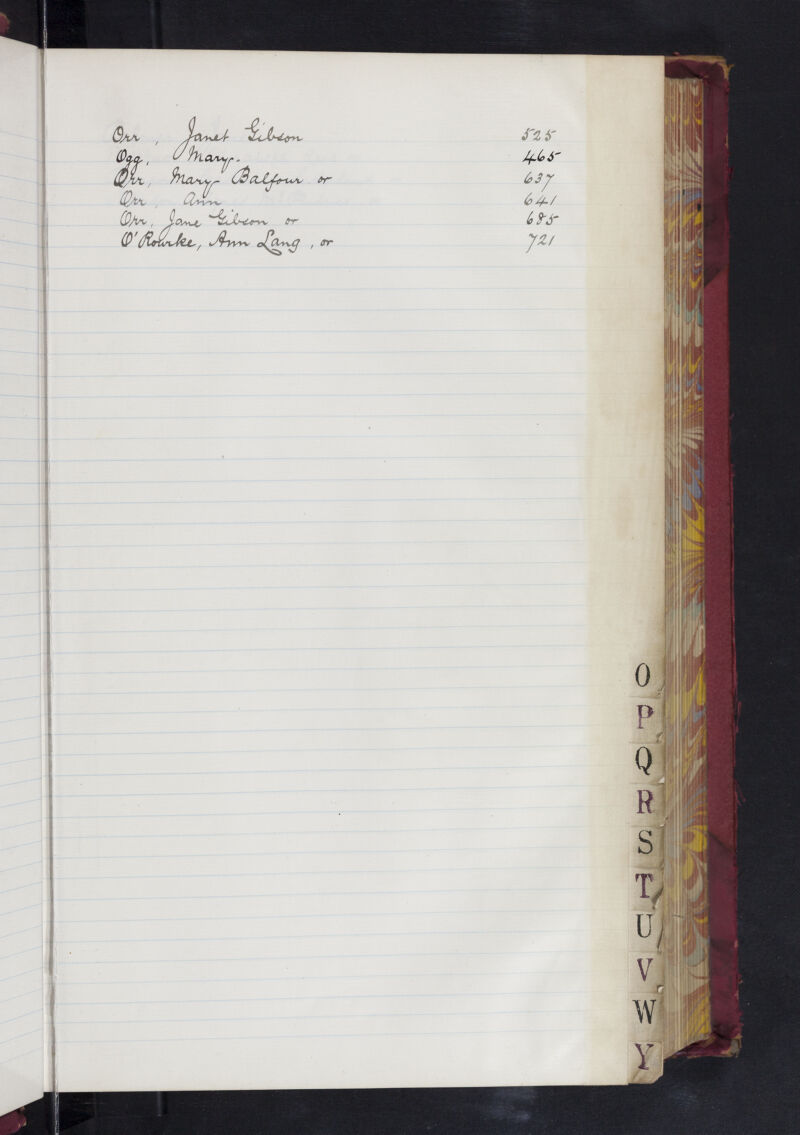 Orr, Janet Gibson 525
Ogg, Mary. 465
Orr, Mary Balfour or 637
Orr Ann 641
Orr, Jane Gibson or 685
O'Rourke, Ann Lang, or 721
O
P
Q
R
S
T
U
V
W
Y